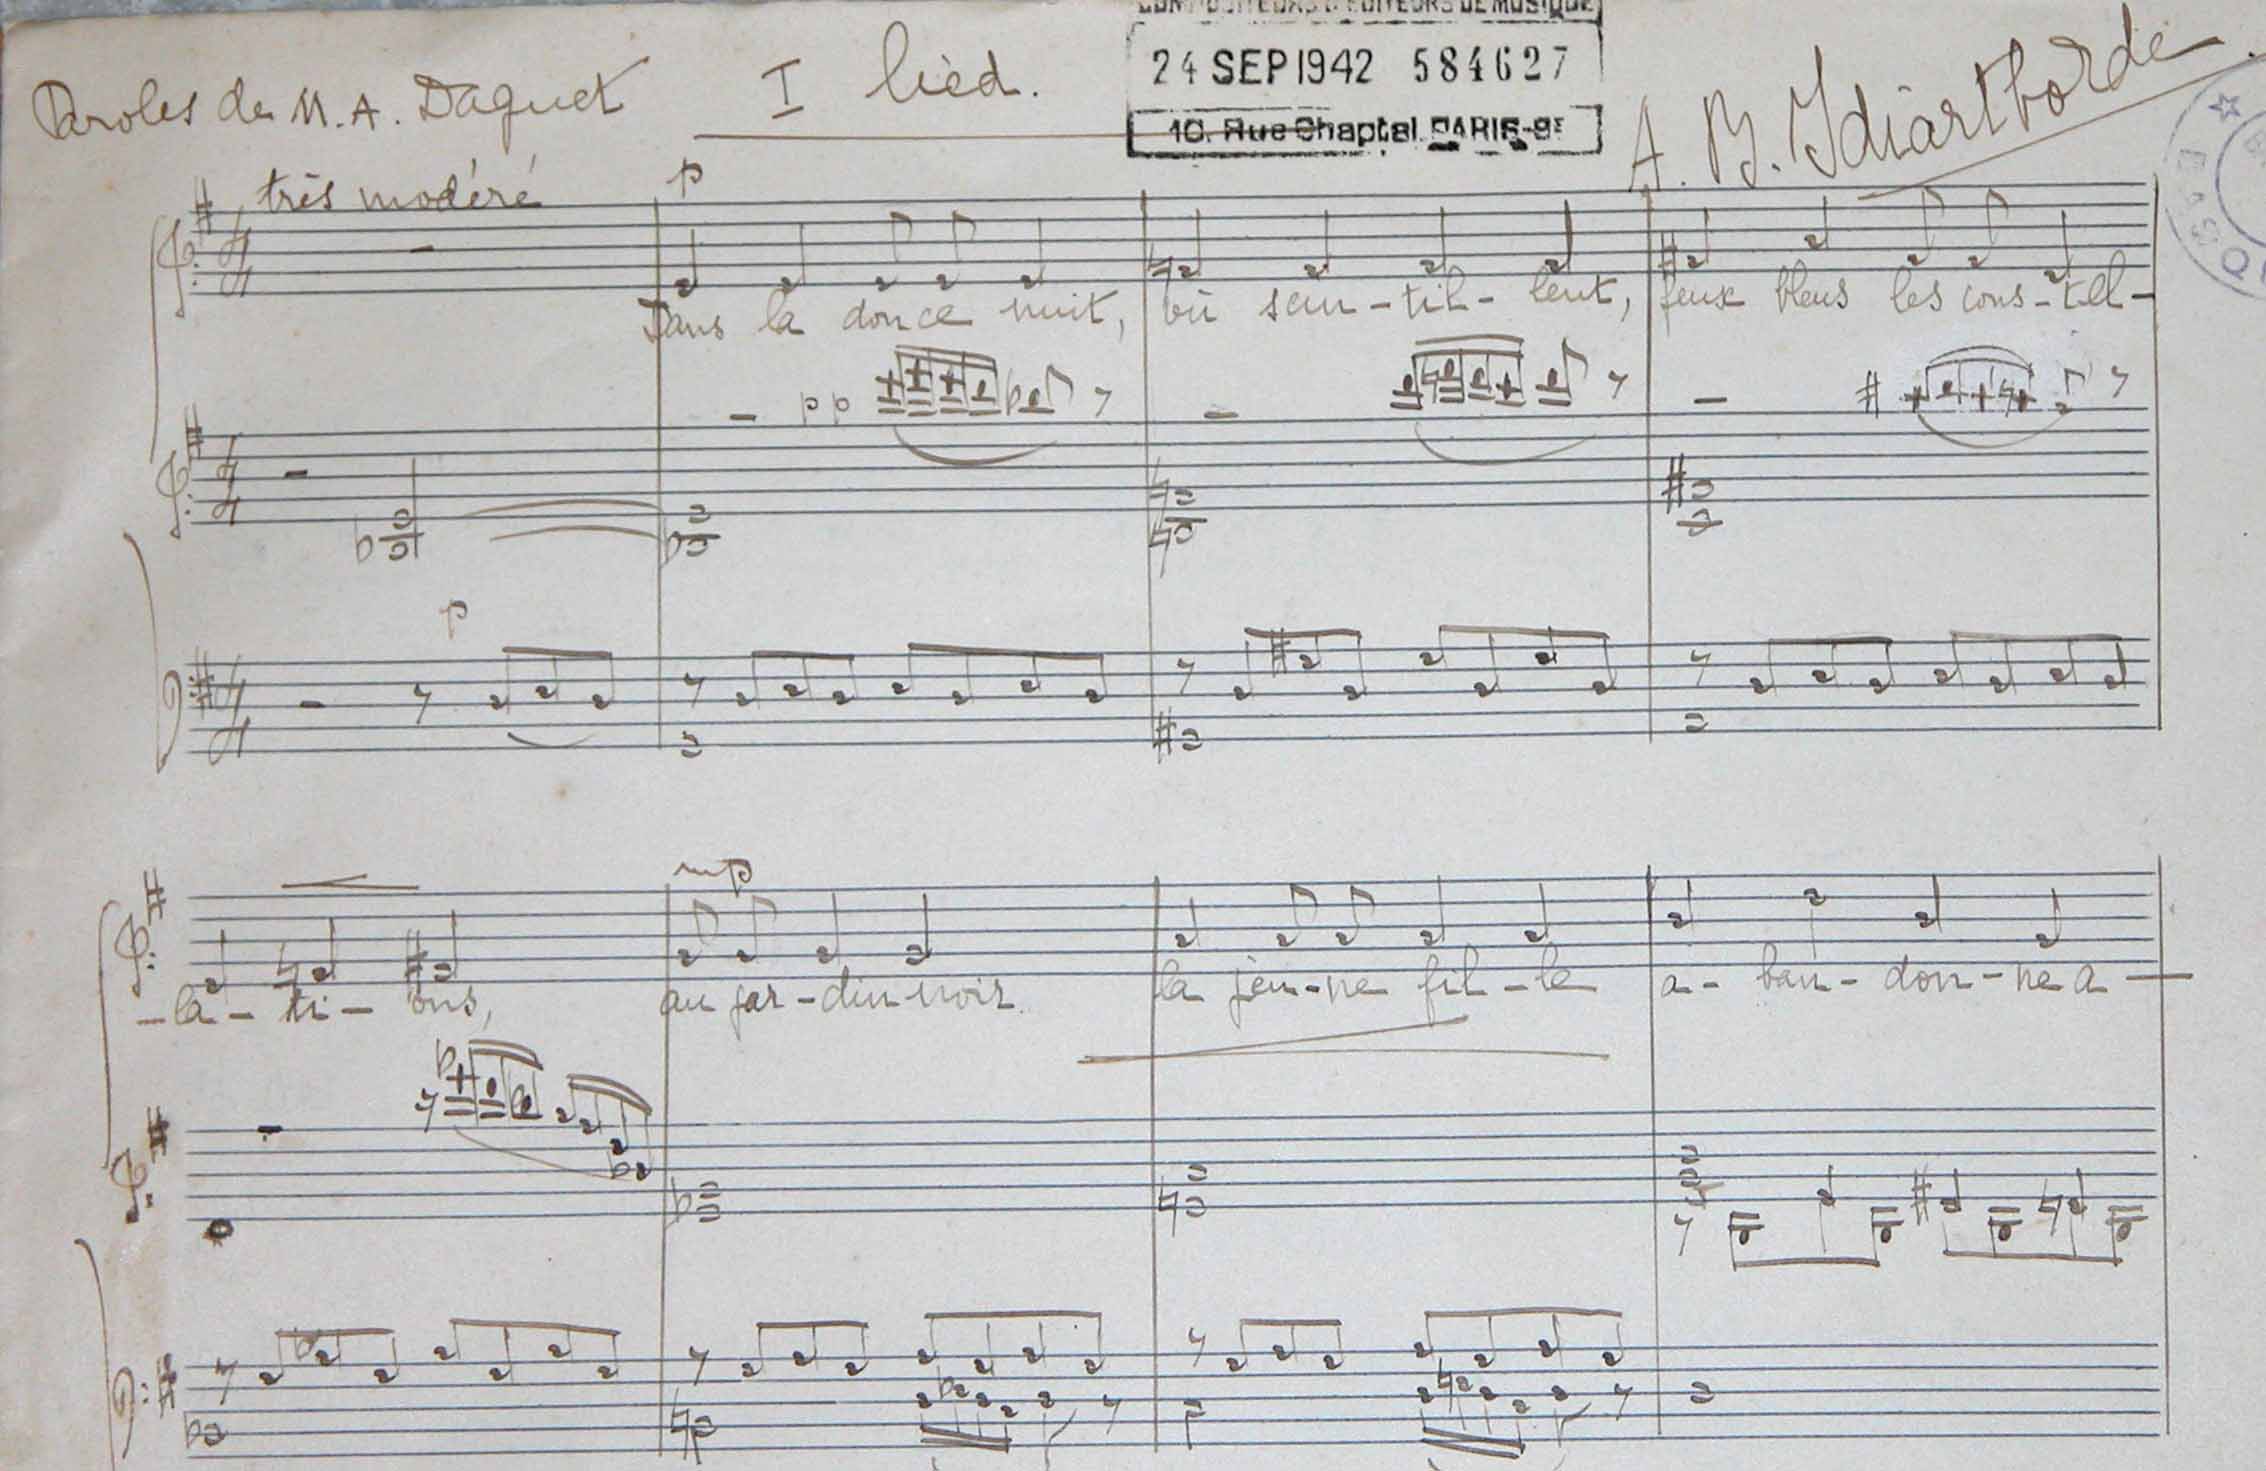 COMPOSITEURS & EDITEURS DE MUSIQUE
Paroles de M. A. Daguet I lied.
24 SEP 1942 584627
10. Rue Chaptal. PARIS-9E
A. B. Idiartborde
très modéré
p
Dans la douce nuit, où scin-til-lent, feux bleus les cons-tel-
pp
p
-la-ti-ons, au jar-din noir la jeu-ne fil-le a-ban-don-ne a-
mp